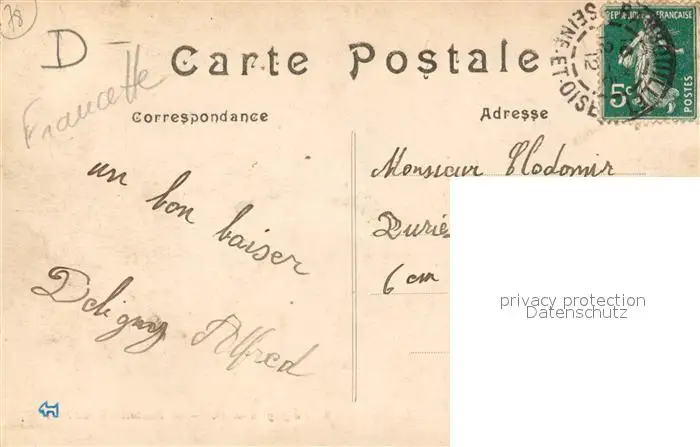 78
D -
Carte Postale
REPUBLIQUE FRANÇAISE
5c
POSTES
SEINE-ET-OISE
Francette
Correspondance
Adresse
un bon baiser
Deligny Alfred
Monsieur Clodomir
6 cm
privacy protection
Datenschutz